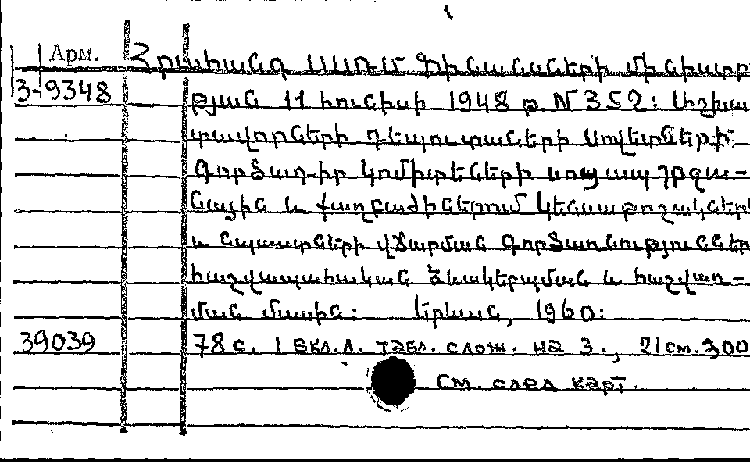 Арм.
Հրահանգ ՍՍՌՄ Ֆինանսների մինիստրու
3-9348
թյան 11 հունիսի 1948 թ. N 352: Աշխա
տավորների դեպուտատների սովետների
գործադիր կոմիտեների սոց ապ շրջա-
նային և քաղբաժիններում կենսաթոշակների
և նպաստների վճարման գործառնություններ
հաշվապահական ձևակերպման և հաշվառ-
ման մասին: Երևան, 1960:
39039
78 с. 1 вкл. л. табл. слож. на 3., 21 см. 300
См. след карт.